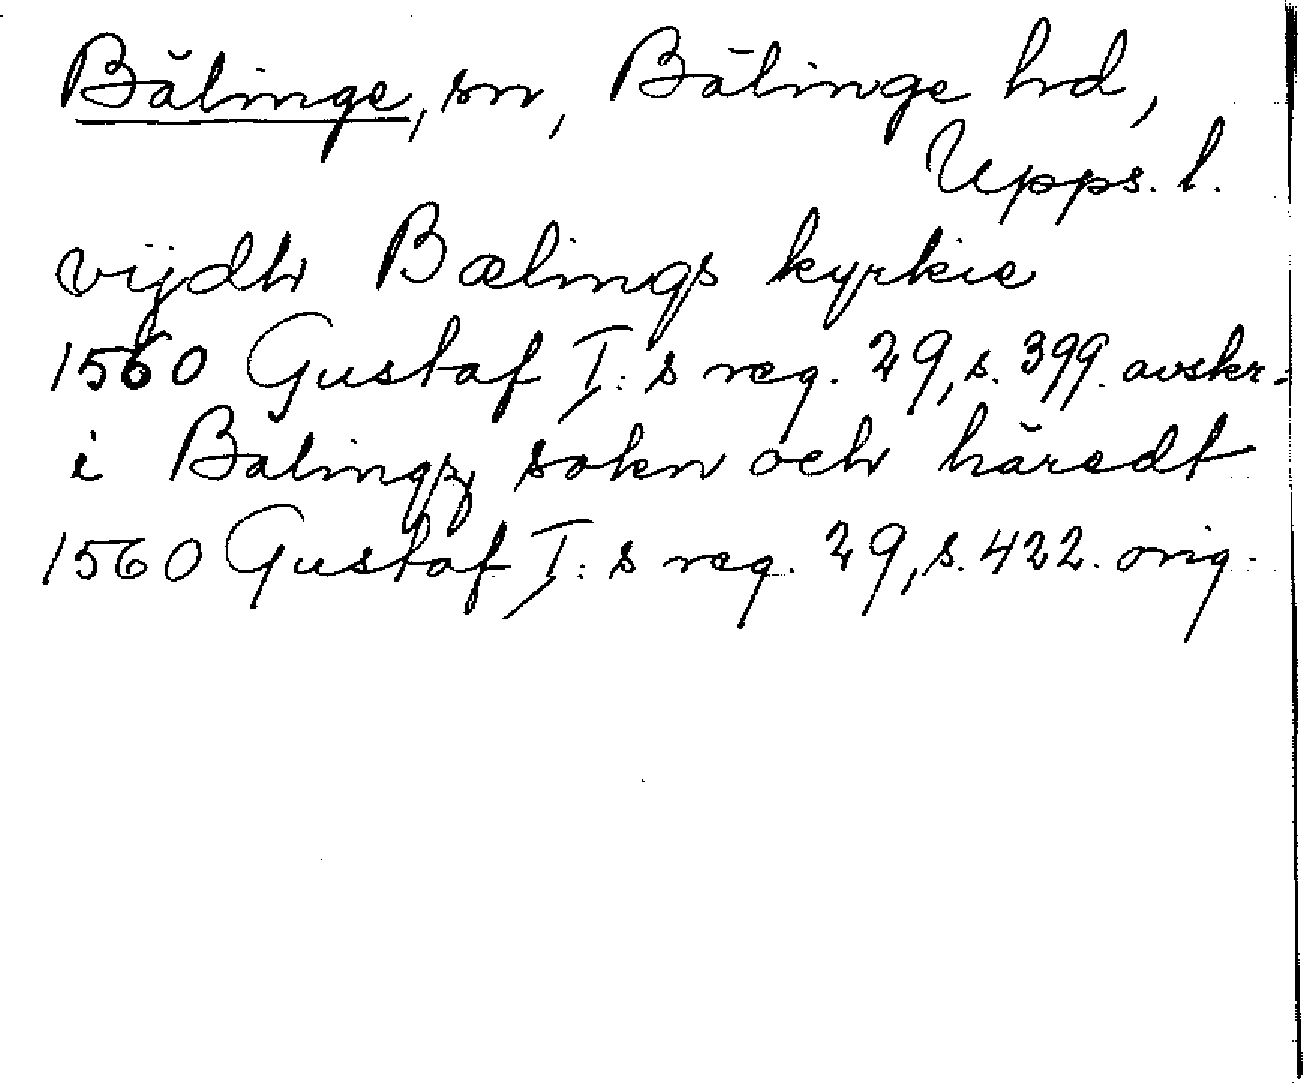 Bälinge, sn, Bälinge hd,
Upps. l.
vijdh Bælings kyrkie
1560 Gustaf I:s reg. 29, s. 399. avskr.
i Balingz sokn och häredt
1560 Gustaf I:s reg. 29, s. 422. orig.